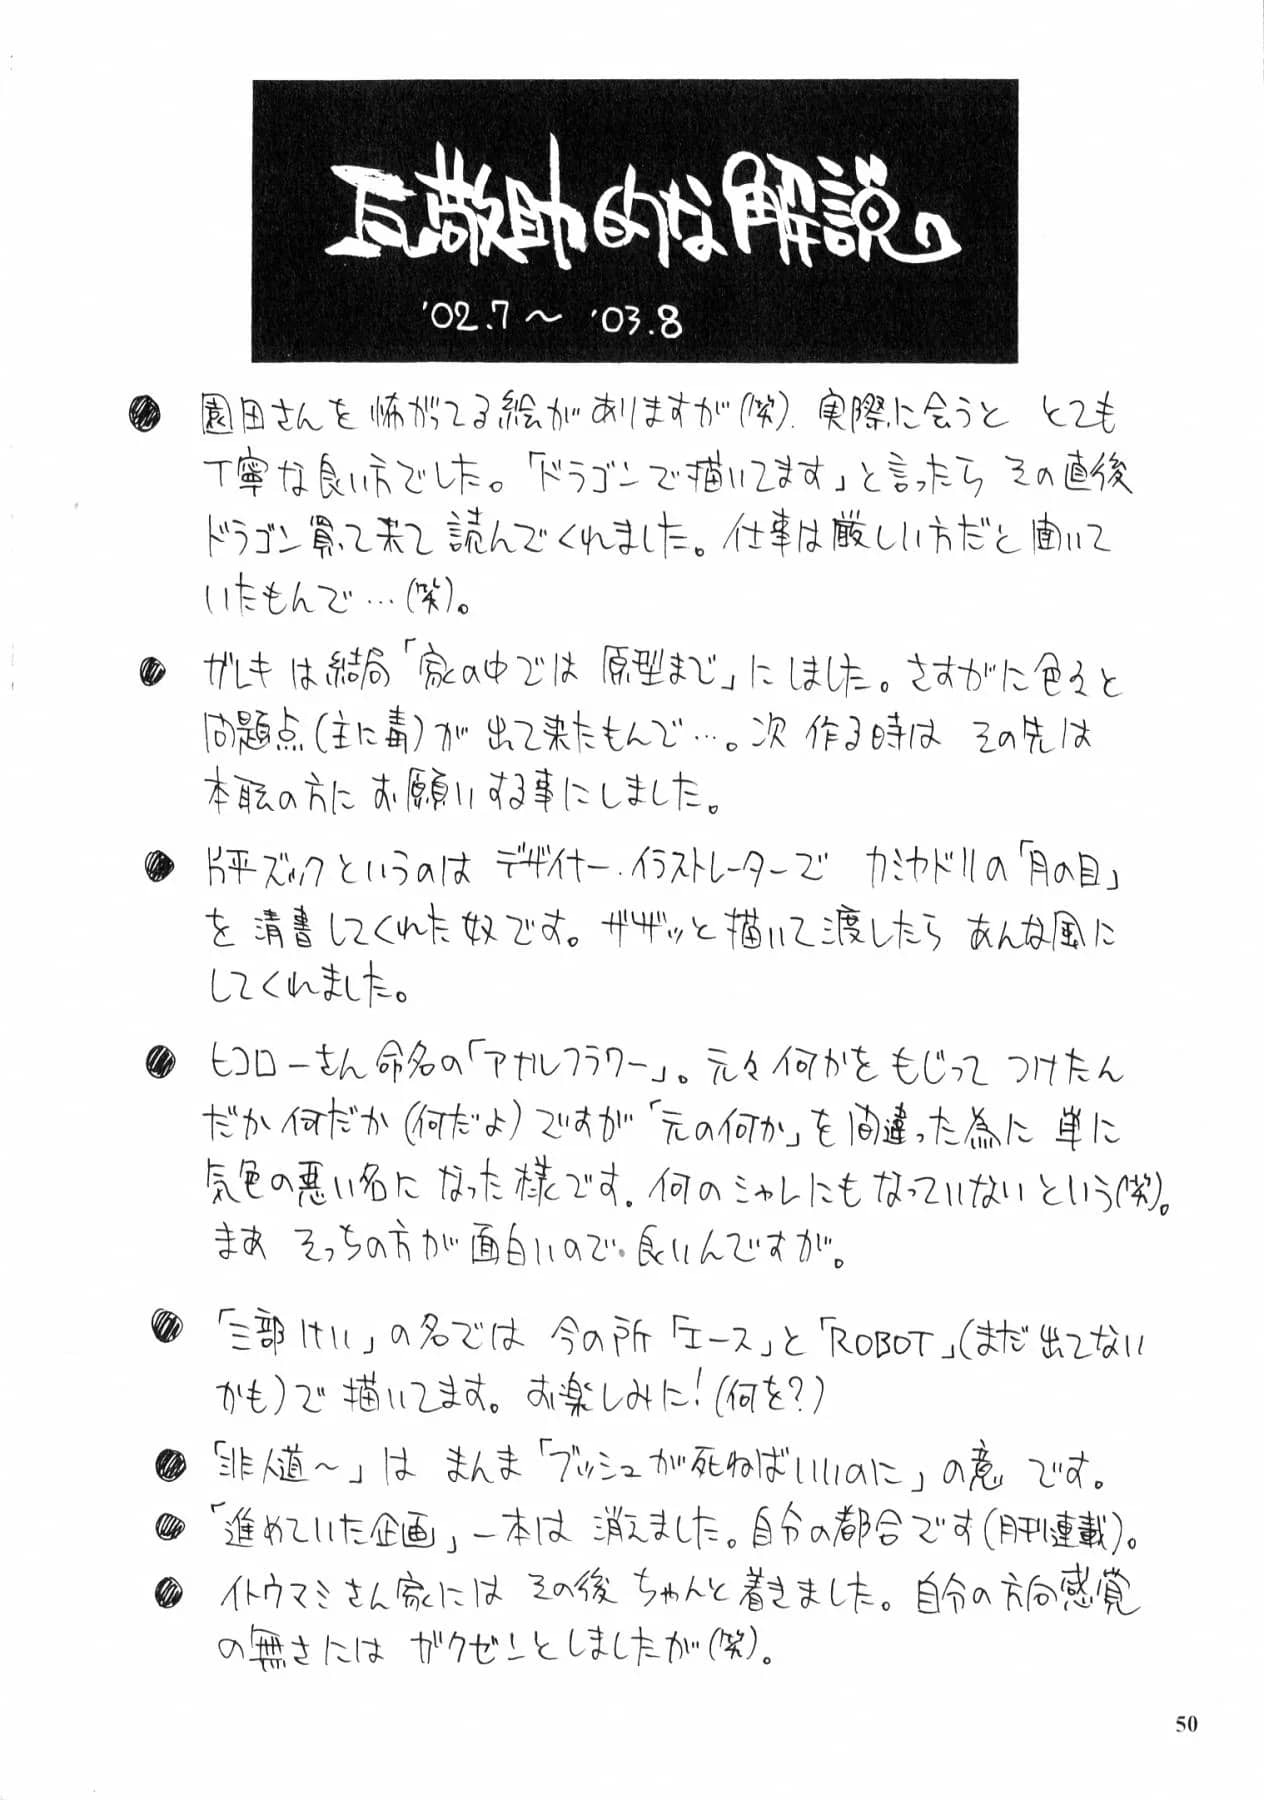 瓦敬助的な解説。
'02.7〜 '03.8
● 園田さんを怖がってる絵がありますが(笑). 実際に会うと とても
丁寧な良い方でした。「ドラゴンで描いてます」と言ったら その直後
ドラゴン買って来て 読んでくれました。仕事は厳しい方だと聞いて
いたもんで…(笑)。
● ガレキは結局「家の中では 原型まで」にしました。さすがに色々と
問題点(主に毒)が 出て来たもんで…。次 作る時は その先は
本職の方に お願いする事にしました。
● 片平ズックというのは デザイナー.イラストレーターで カミヤドリの「月の目」
を 清書してくれた奴です。ザザッと描いて渡したら あんな風に
してくれました。
● ヒコローさん命名の「アナルフラワー」。元々何かを もじって つけたん
だか何だか(何だよ)ですが「元の何か」を間違った為に 単に
気色の悪い名に なった様です. 何のシャレにもなっていないという(笑)。
まあ そっちの方が 面白いので.良いんですが。
● 「三部けい」の名では 今の所「エース」と「ROBOT」(まだ出てない
かも)で 描いてます。お楽しみに!(何を?)
● 「非人道〜」は まんま「ブッシュが死ねばいいのに」の意 です。
● 「進めていた企画」一本は 消えました。自分の都合です(月刊連載)。
● イトウマミさん家には その後 ちゃんと着きました。自分の方向感覚
の無さには ガクゼンとしましたが(笑)。
50